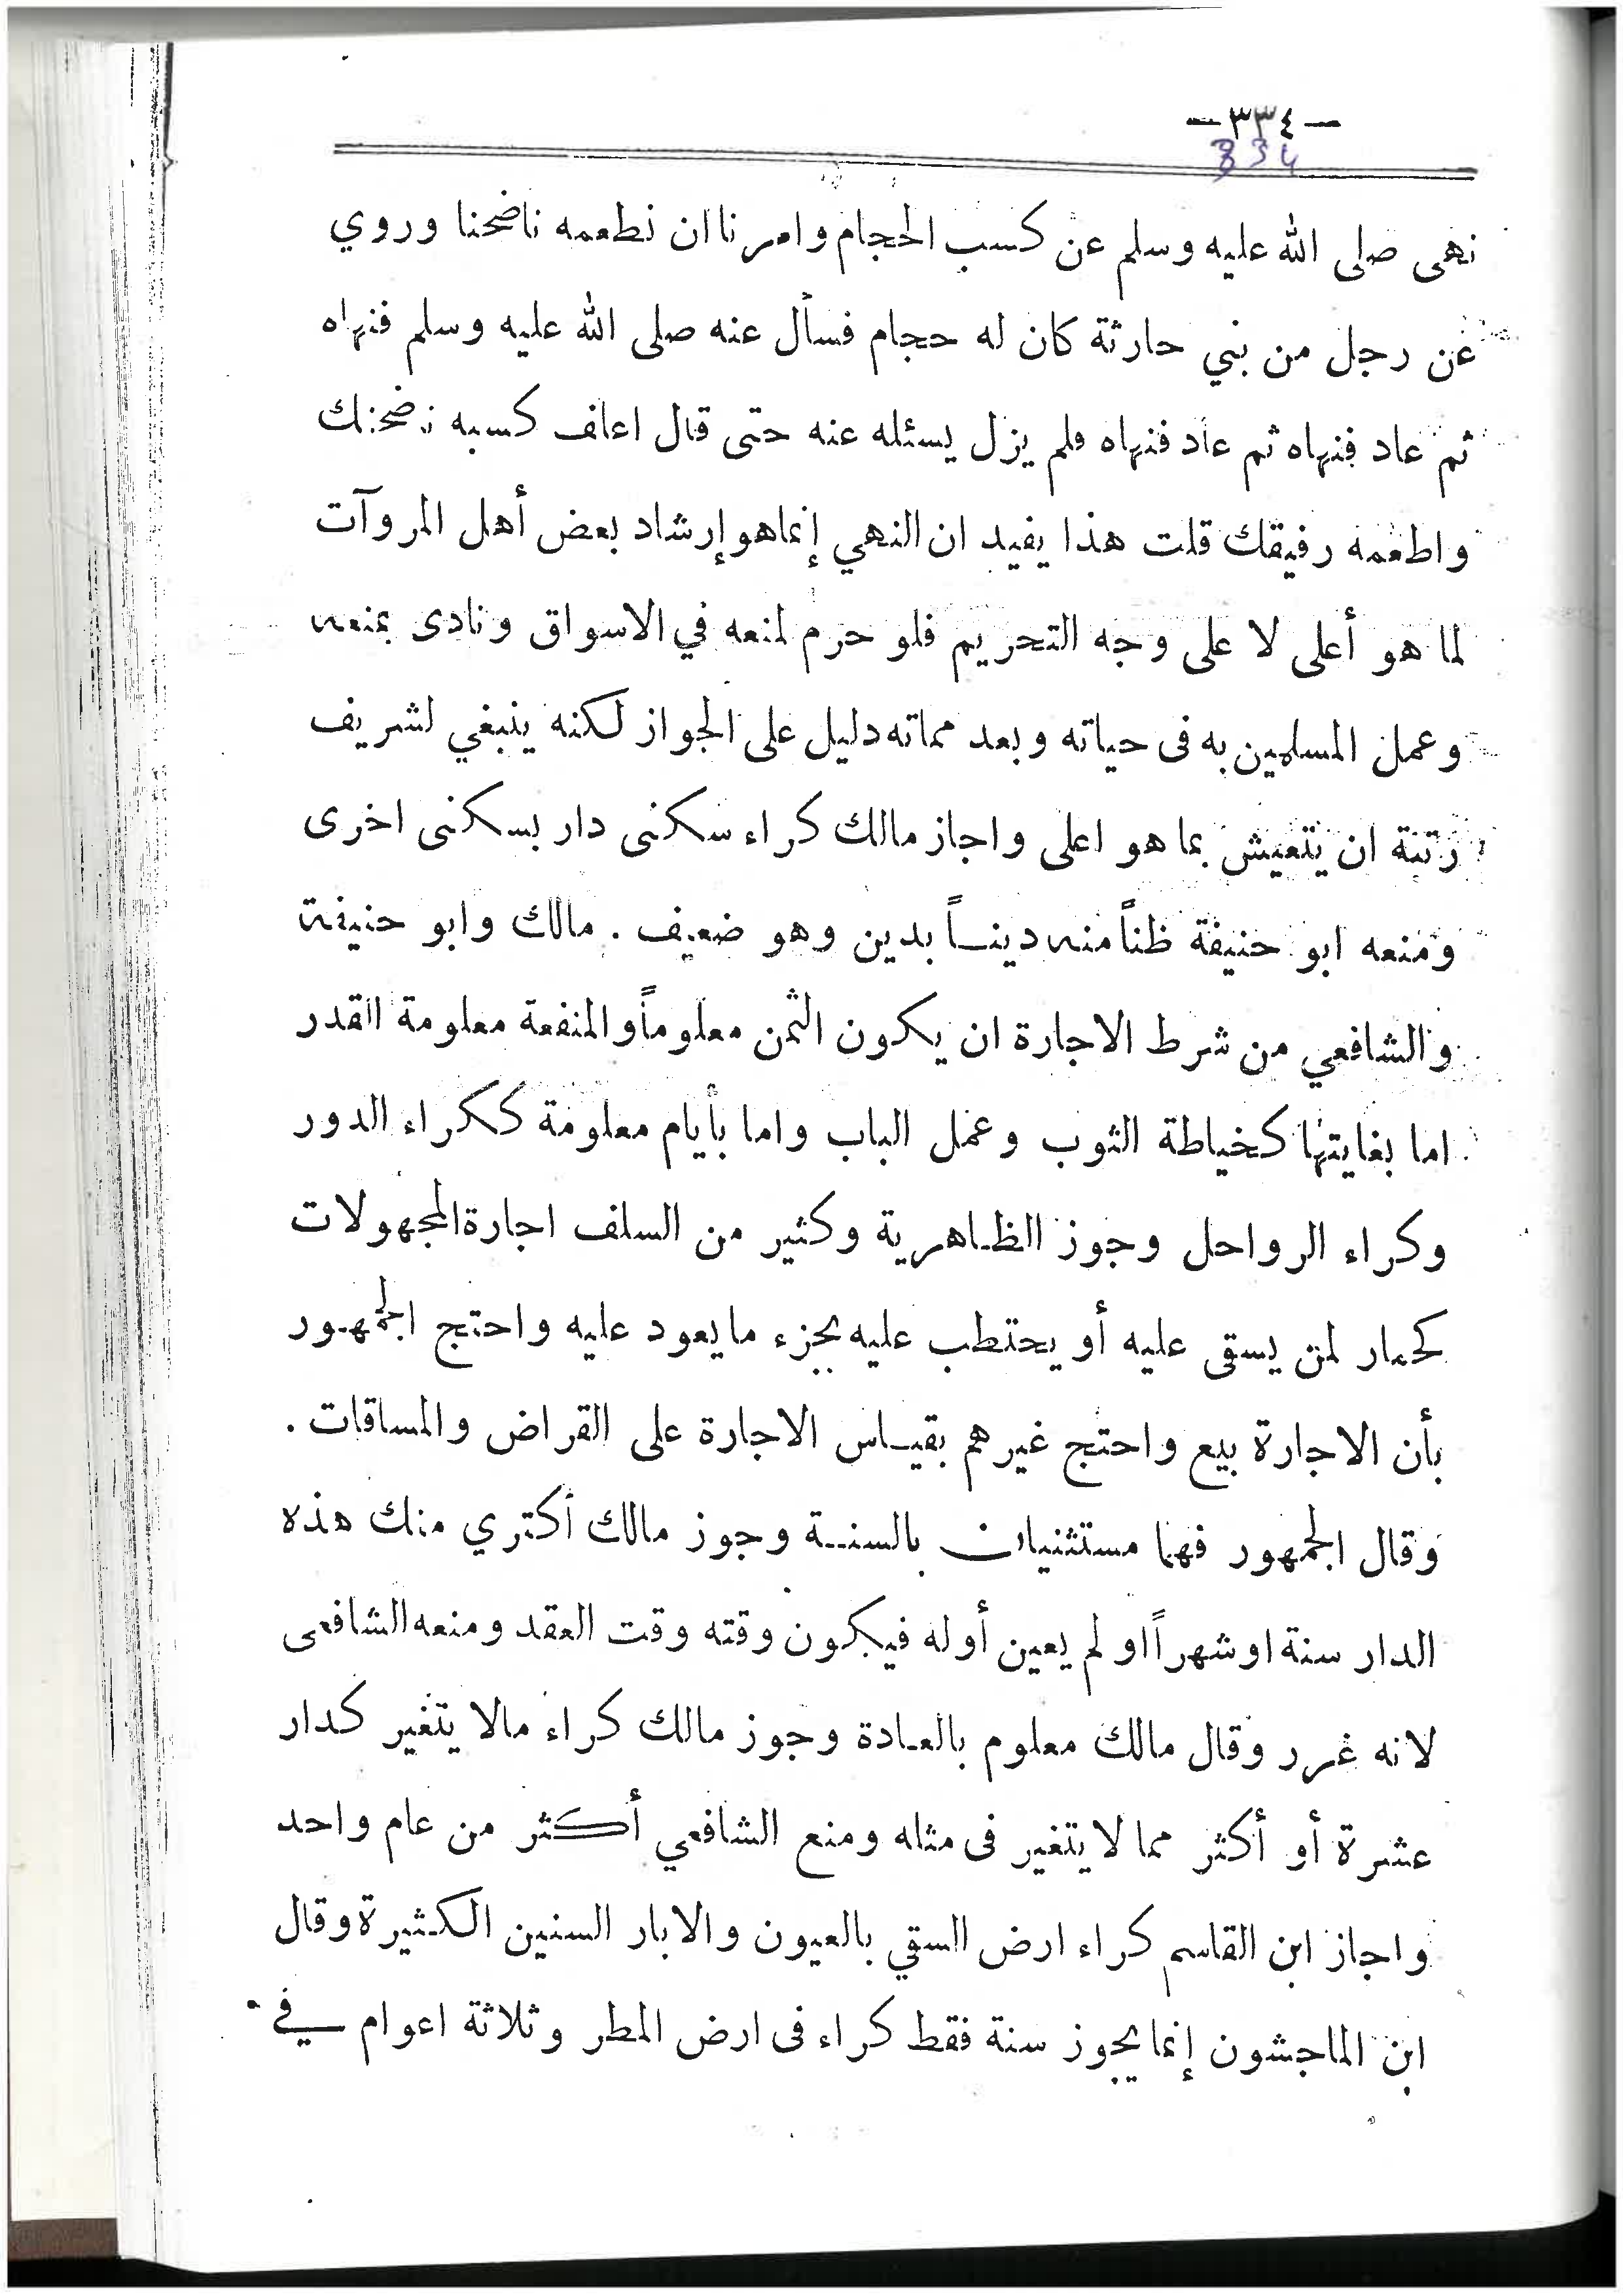 — ٣٣٤ —
334
نهى صلى الله عليه وسلم عن كسب الحجام وامرنا ان نطعمه ناضحنا وروي
عن رجل من بني حارثة كان له حجام فسأل عنه صلى الله عليه وسلم فنهاه
ثم عاد فنهاه ثم عاد فنهاه فلم يزل يسئله عنه حتى قال اعلف كسبه نضحك
واطعمه رفيقك قلت هذا يفيد ان النهي إنما هو إرشاد بعض أهل المروآت
لما هو أعلى لا على وجه التحريم فلو حرم لمنعه في الاسواق ونادى بمنعه
وعمل المسلمين به فى حياته وبعد مماته دليل على الجواز لكنه ينبغي لشريف
رتبة ان يتعيش بما هو اعلى واجاز مالك كراء سكنى دار بسكنى اخرى
ومنعه ابو حنيفة ظناً منه ديناً بدين وهو ضعيف . مالك وابو حنيفة
والشافعي من شرط الاجارة ان يكون الثمن معلوماً والمنفعة معلومة القدر
اما بغايتها كخياطة الثوب وعمل الباب واما بأيام معلومة ككراء الدور
وكراء الرواحل وجوز الظاهرية وكثير من السلف اجارة المجهولات
كحمار لمن يسقى عليه أو يحتطب عليه بجزء ما يعود عليه واحتج الجمهور
بأن الاجارة بيع واحتج غيرهم بقياس الاجارة على القراض والمساقات .
وقال الجمهور فهما مستثنيان بالسنة وجوز مالك أكتري منك هذه
الدار سنة او شهراً او لم يعين أوله فيكون وقته وقت العقد ومنعه الشافعى
لانه غرر وقال مالك معلوم بالعادة وجوز مالك كراء مالا يتغير كدار
عشرة أو أكثر مما لا يتغير فى مثله ومنع الشافعي أكثر من عام واحد
واجاز ابن القاسم كراء ارض السقي بالعيون والابار السنين الكثيرة وقال
ابن الماجشون إنما يجوز سنة فقط كراء فى ارض المطر وثلاثة اعوام في